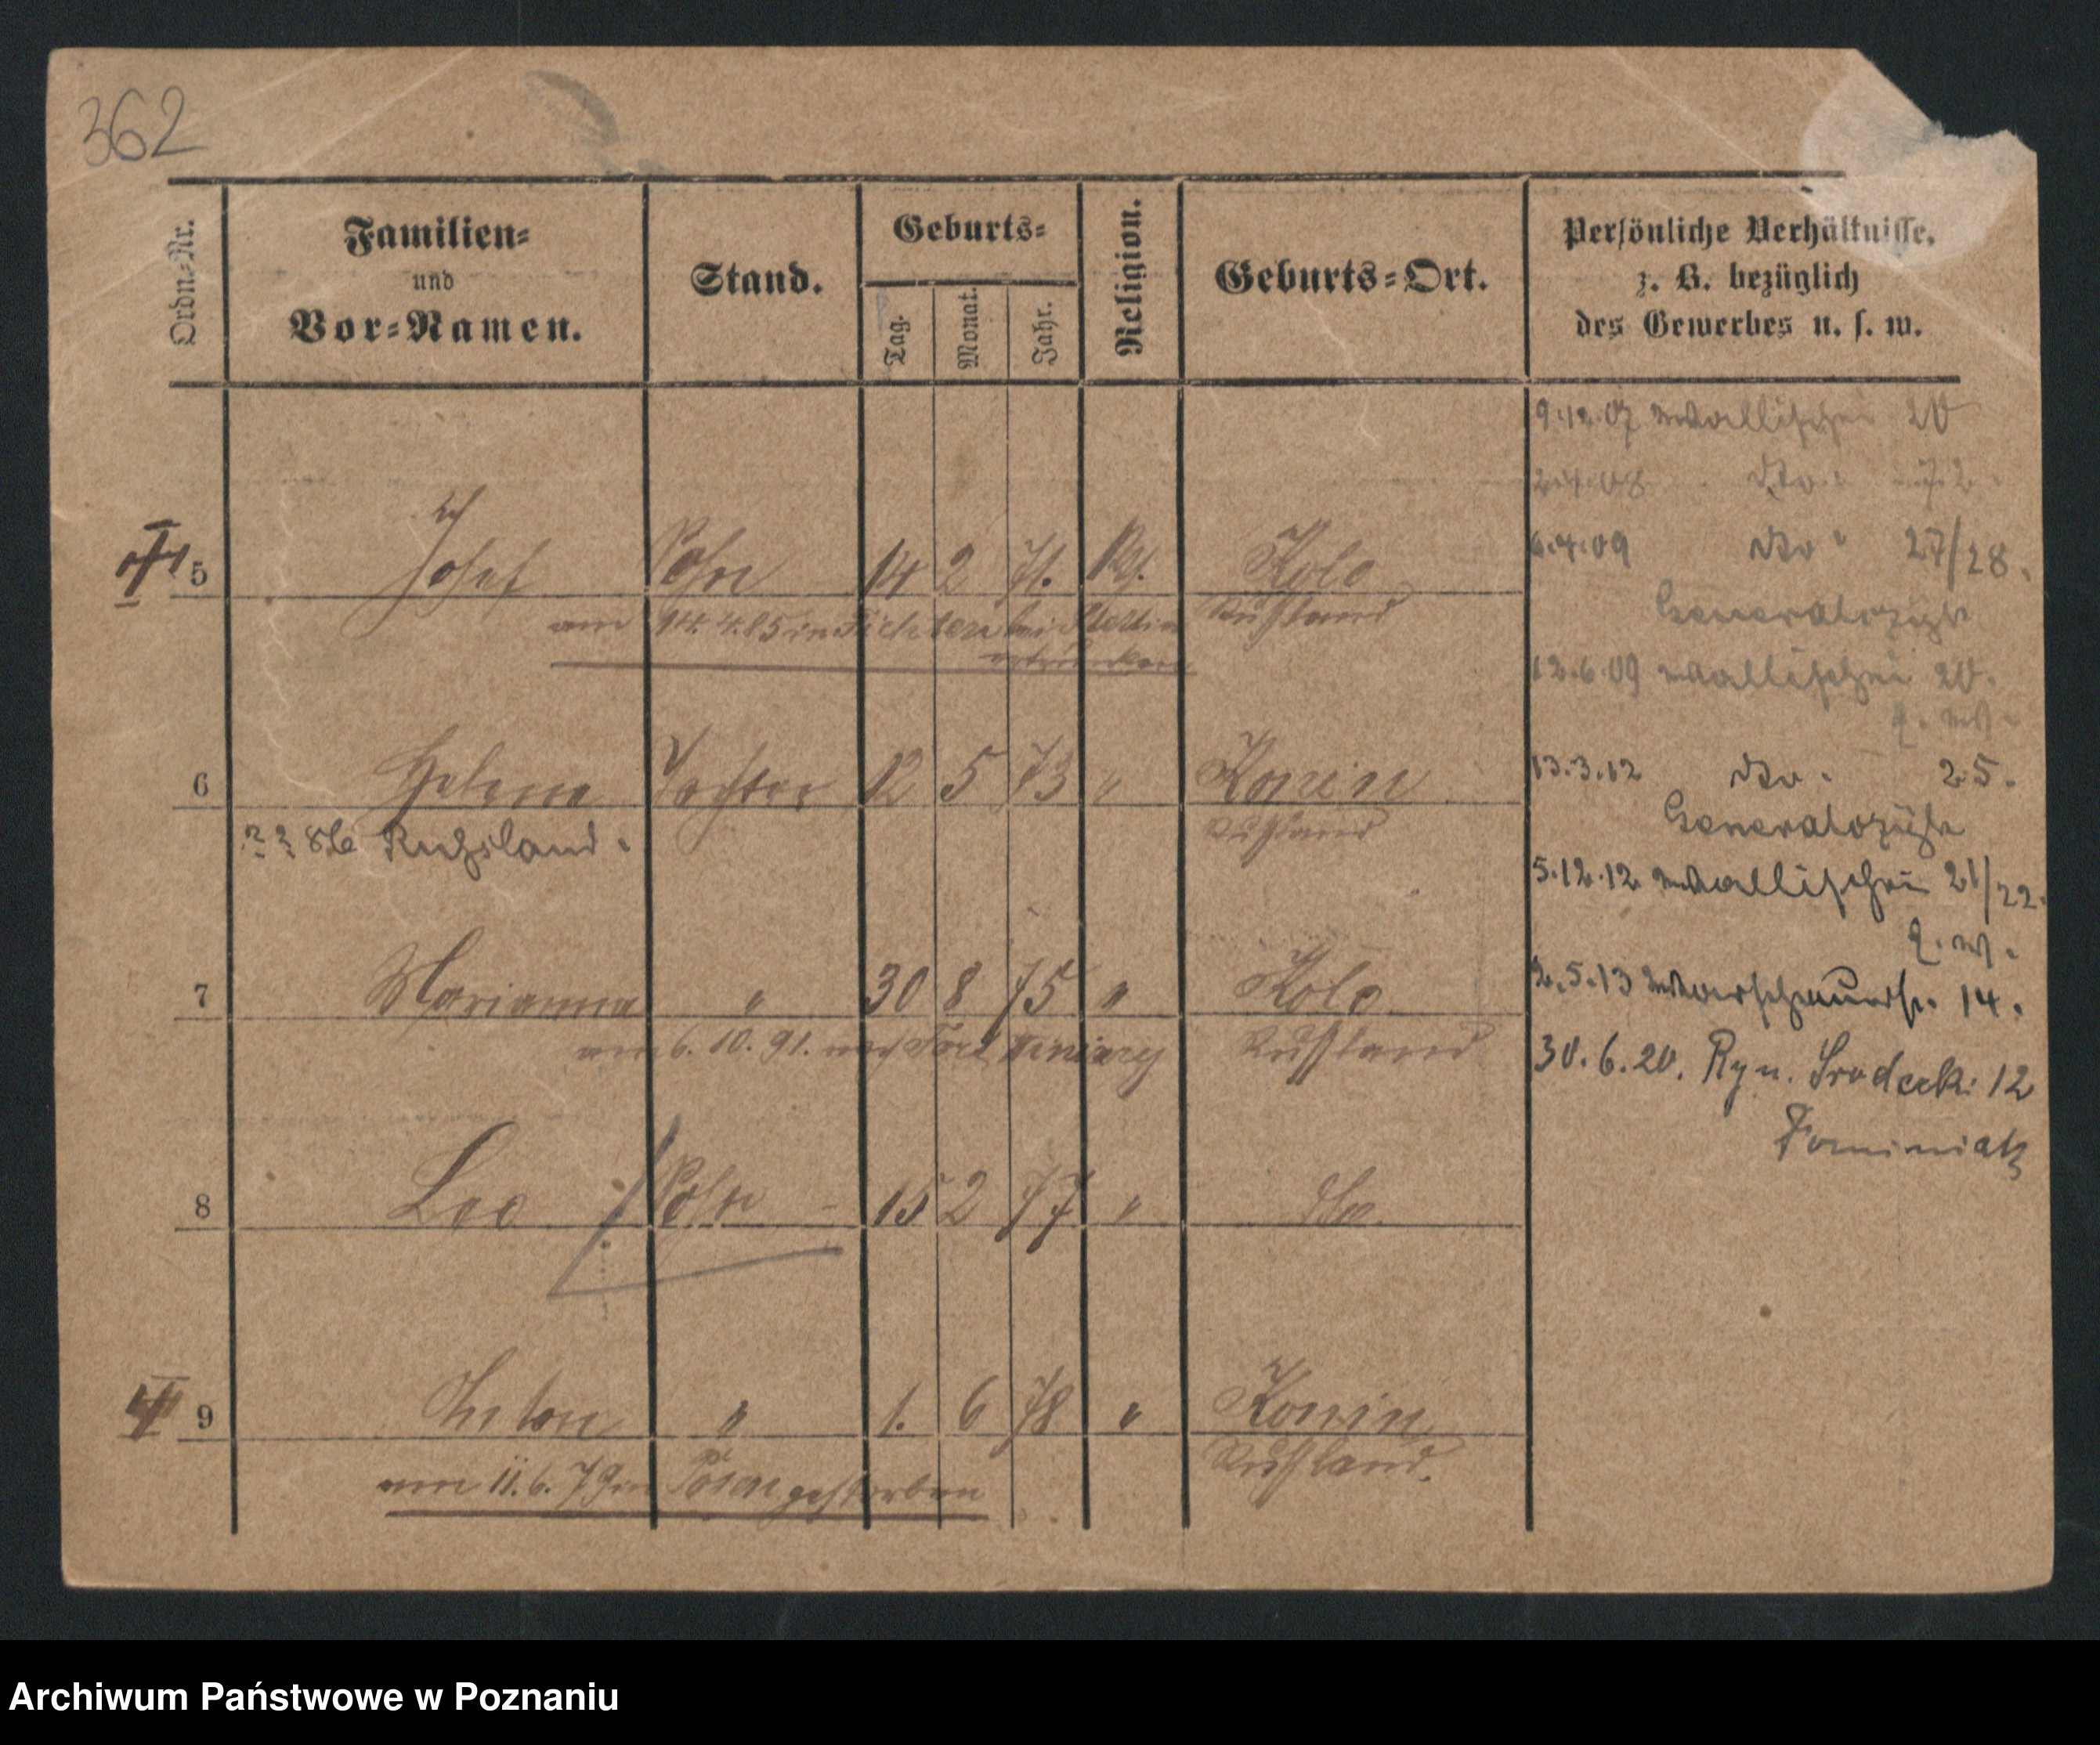 362
Ordn.-Nr.
Familien-
und
Vor-Namen.
Stand.
Geburts-
Tag.
Monat.
Jahr.
Religion.
Geburts-Ort.
Persönliche Verhältnisse,
z. B. bezüglich
des Gewerbes u. s. w.
9.12.07 Wallischei 20
2.4.08 dto. 72.
6.4.09 dto 27/28.
5 Josef Sohn 14 2 71. Kolo
Rußland
am 14.4.85 in bei Stettin
ertrunken
12.6.09 Wallischei 20.
6 Helena Tochter 12 5 73 " Konin
Rußland
86 Russland.
13.3.12 dto. 25.
5.12.12 Wallischei 21/22.
7 Marianna " 30 8 75 " Kolo
Rußland
am 6. 10. 91. nach Fort Winiary
2.5.13 Warschauerstr. 14.
30.6.20. Ryn. Srodecki 12
8 Leo Sohn 15 2 77 " dto.
9 Anton " 1. 6 78 " Konin
Rußland.
am 11.6.79 in Posen gestorben
Archiwum Państwowe w Poznaniu